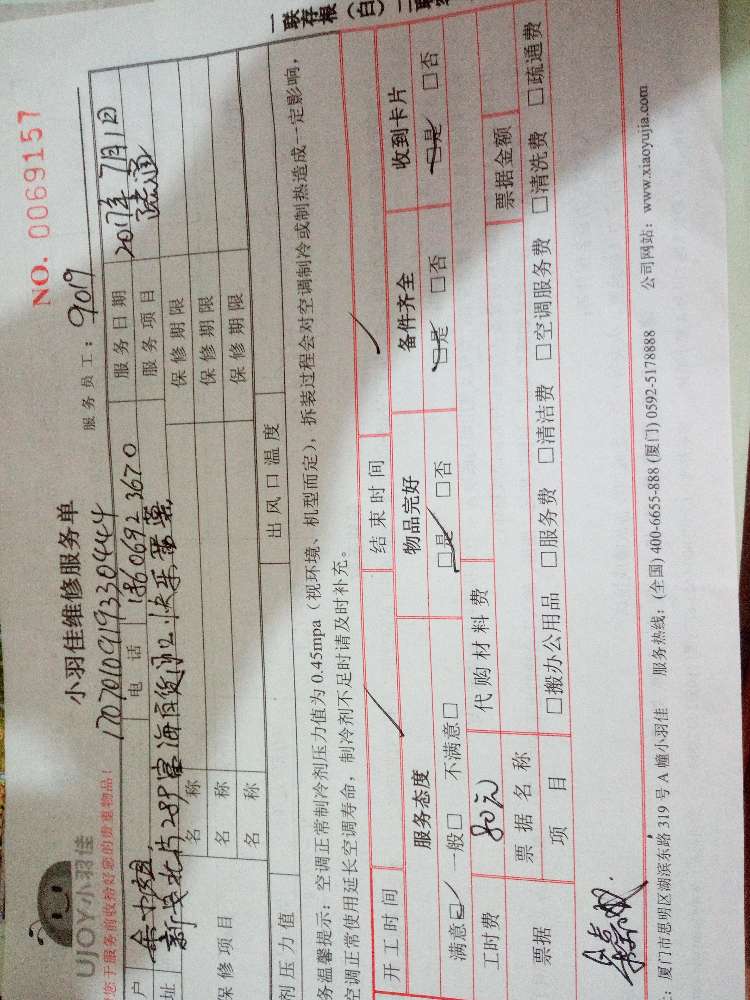 一联存根(白)二联
NO. 0069157
UJOY小羽佳
小羽佳维修服务单
您于服务前收拾好您的贵重物品!
1707010919330444
服务员工: 9019
户
电话 18606923670
服务日期 2017年7月1日
址
服务项目 疏通
保修项目
名称
保修期限
名称
保修期限
名称
保修期限
剂压力值
出风口温度
务温馨提示:空调正常制冷剂压力值为0.45mpa(视环境、机型而定),拆装过程会对空调制冷或制热造成一定影响,
空调正常使用延长空调寿命,制冷剂不足时请及时补充。
开工时间
结束时间
服务态度
物品完好
备件齐全
收到卡片
满意□ 一般□ 不满意□
□是 □否
□是 □否
□是 □否
工时费 80元
代购材料费
票据
票据名称
票据金额
项目
□搬办公用品 □服务费 □清洁费 □空调服务费 □清洗费 □疏通费
:厦门市思明区湖滨东路319号A幢小羽佳 服务热线:(全国)400-6655-888 (厦门)0592-5178888 公司网站:www.xiaoyujia.com